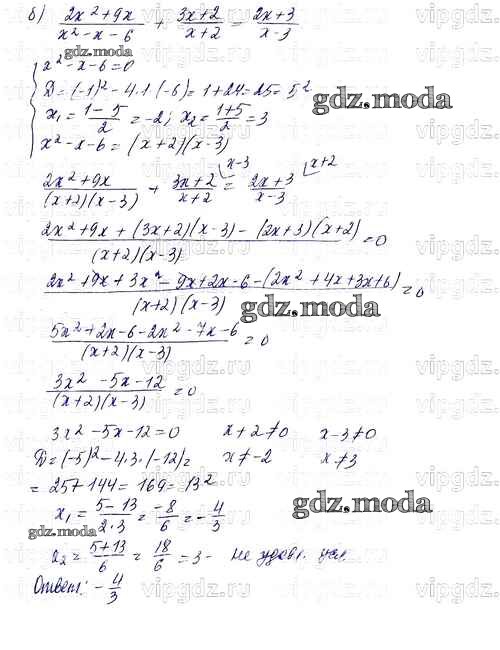 б) (2x²+9x)/(x²-x-6) + (3x+2)/(x+2) = (2x+3)/(x-3)
gdz.moda
x²-x-6=0
D=(-1)²-4·1·(-6)=1+24=25=5²
gdz.moda
x₁=(1-5)/2=-2; x₂=(1+5)/2=3
x²-x-6=(x+2)(x-3)
(2x²+9x)/((x+2)(x-3)) + (3x+2)/(x+2) ⌊x-3 = (2x+3)/(x-3) ⌊x+2
(2x²+9x+(3x+2)(x-3)-(2x+3)(x+2))/((x+2)(x-3))=0
(2x²+9x+3x²-9x+2x-6-(2x²+4x+3x+6))/((x+2)(x-3))=0
gdz.moda
(5x²+2x-6-2x²-7x-6)/((x+2)(x-3))=0
(3x²-5x-12)/((x+2)(x-3))=0
3x²-5x-12=0 x+2≠0 x-3≠0
D=(-5)²-4·3·(-12)= x≠-2 x≠3
=25+144=169=13²
x₁=(5-13)/(2·3)=-8/6=-4/3
gdz.moda
x₂=(5+13)/6=18/6=3- не удовл. усл.
Ответ: -4/3
vipgdz.ru